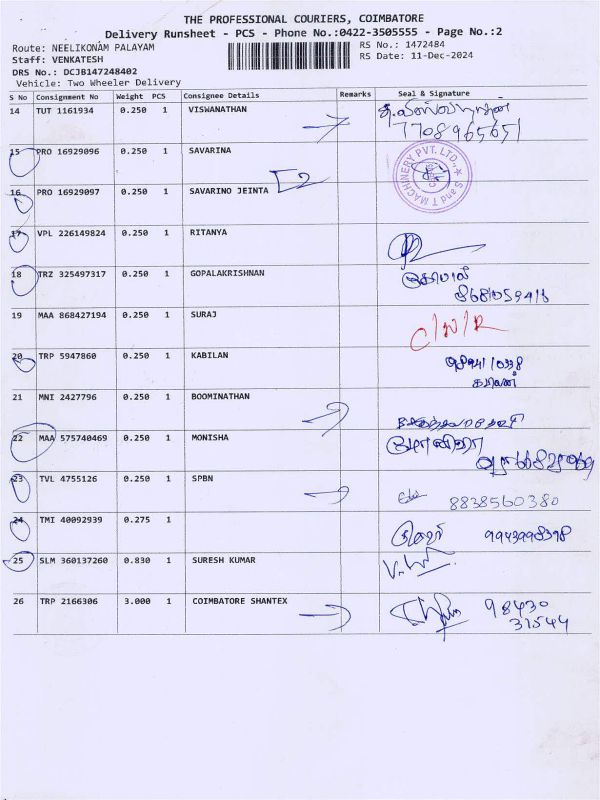 THE PROFESSIONAL COURIERS, COIMBATORE
Delivery Runsheet - PCS - Phone No.:0422-3505555 - Page No.:2
Route: NEELIKONAM PALAYAM
RS No.: 1472484
Staff: VENKATESH
RS Date: 11-Dec-2024
DRS No.: DCJB147248402
Vehicle: Two Wheeler Delivery
S No Consignment No Weight PCS Consignee Details Remarks Seal & Signature
14 TUT 1161934 0.250 1 VISWANATHAN
15 PRO 16929096 0.250 1 SAVARINA
S and T MACHINERY PVT. LTD.,
16 PRO 16929097 0.250 1 SAVARINO JEINTA
17 VPL 226149824 0.250 1 RITANYA
18 TRZ 325497317 0.250 1 GOPALAKRISHNAN
கோபால்
19 MAA 868427194 0.250 1 SURAJ
C/N/R
20 TRP 5947860 0.250 1 KABILAN
கபிலன்
21 MNI 2427796 0.250 1 BOOMINATHAN
22 MAA 575740469 0.250 1 MONISHA
மோனிஷா
23 TVL 4755126 0.250 1 SPBN
8838560380
24 TMI 40092939 0.275 1
9943998398
25 SLM 360137260 0.830 1 SURESH KUMAR
26 TRP 2166306 3.000 1 COIMBATORE SHANTEX
98430
31544